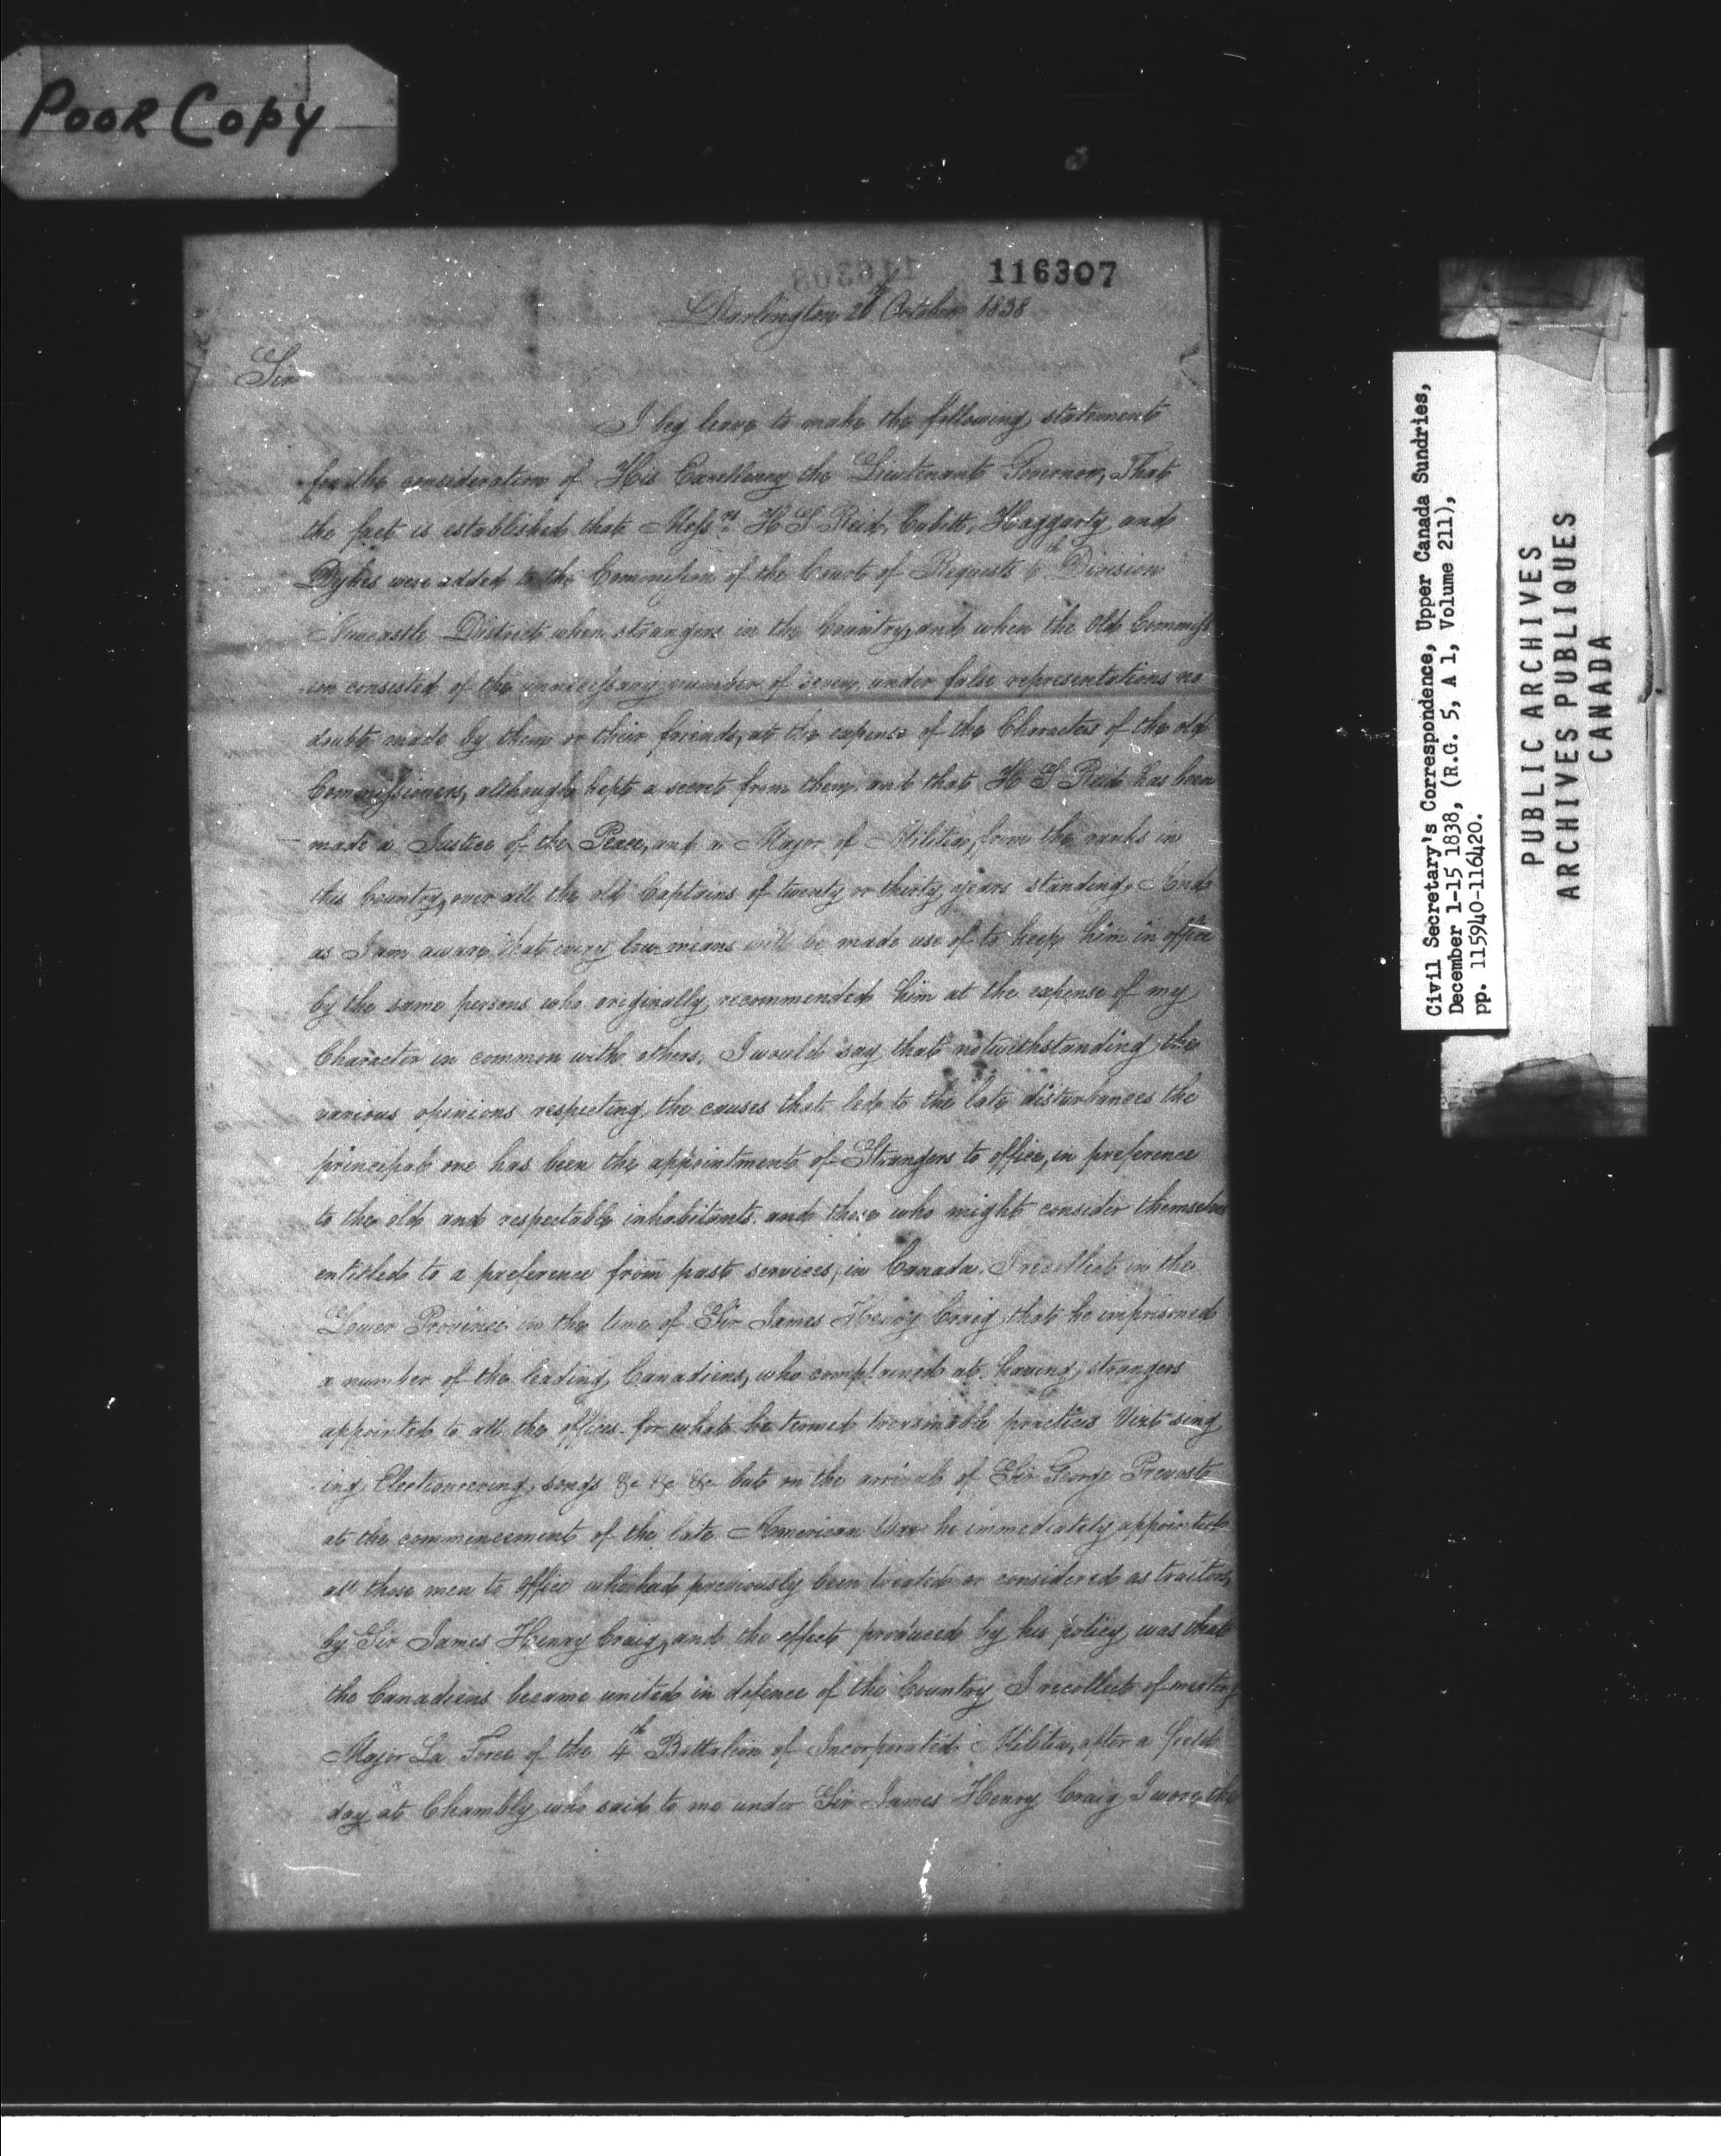 Poor Copy
116307
Darlington 26th October 1838
Sir
I beg leave to make the following statement
for the consideration of His Excellency the Lieutenant Governor, That
the fact is established that Messrs. H S Reid, Cubitt, Haggarty and
Dykes were added to the Commission of the Court of Requests 6th Division
Newcastle District when strangers in the Country, and when the Old Commiss
ion consisted of the unnecessary number of seven, under false representations no
doubt made by them or their friends, at the expense of the Character of the old
Commissioners, although kept a secret from them, and that H S Reid has been
made a Justice of the Peace, and a Major of Militia, from the ranks in
this Country, over all the old Captains of twenty or thirty years standing, And
as I am aware that every low means will be made use of to keep him in office
by the same persons who originally recommended him at the expense of my
Character in common with others, I would say that notwithstanding the
various opinions respecting the causes that led to the late disturbances the
principal one has been the appointment of Strangers to office, in preference
to the old and respectable inhabitants, and those who might consider themselves
entitled to a preference from past services, in Canada. I recollect in the
Lower Province in the time of Sir James Henry Craig, that he imprisoned
a number of the leading Canadians, who complained at having strangers
appointed to all the offices for what he termed treasonable practices Vizt sing
ing Electioneering songs &c &c &c but on the arrival of Sir George Prevost
at the commencement of the late American War he immediately appointed
all those men to office who had previously been treated or considered as traitors,
by Sir James Henry Craig, and the effect produced by his policy was that
the Canadians became united in defence of the Country I recollect of meeting
Major La Force of the 4th Battalion of Incorporated Militia, after a field
day at Chambly who said to me under Sir James Henry Craig I wore the
Civil Secretary's Correspondence, Upper Canada Sundries,
December 1-15 1838, (R.G. 5, A 1, Volume 211),
pp. 115940-116420.
PUBLIC ARCHIVES
ARCHIVES PUBLIQUES
CANADA